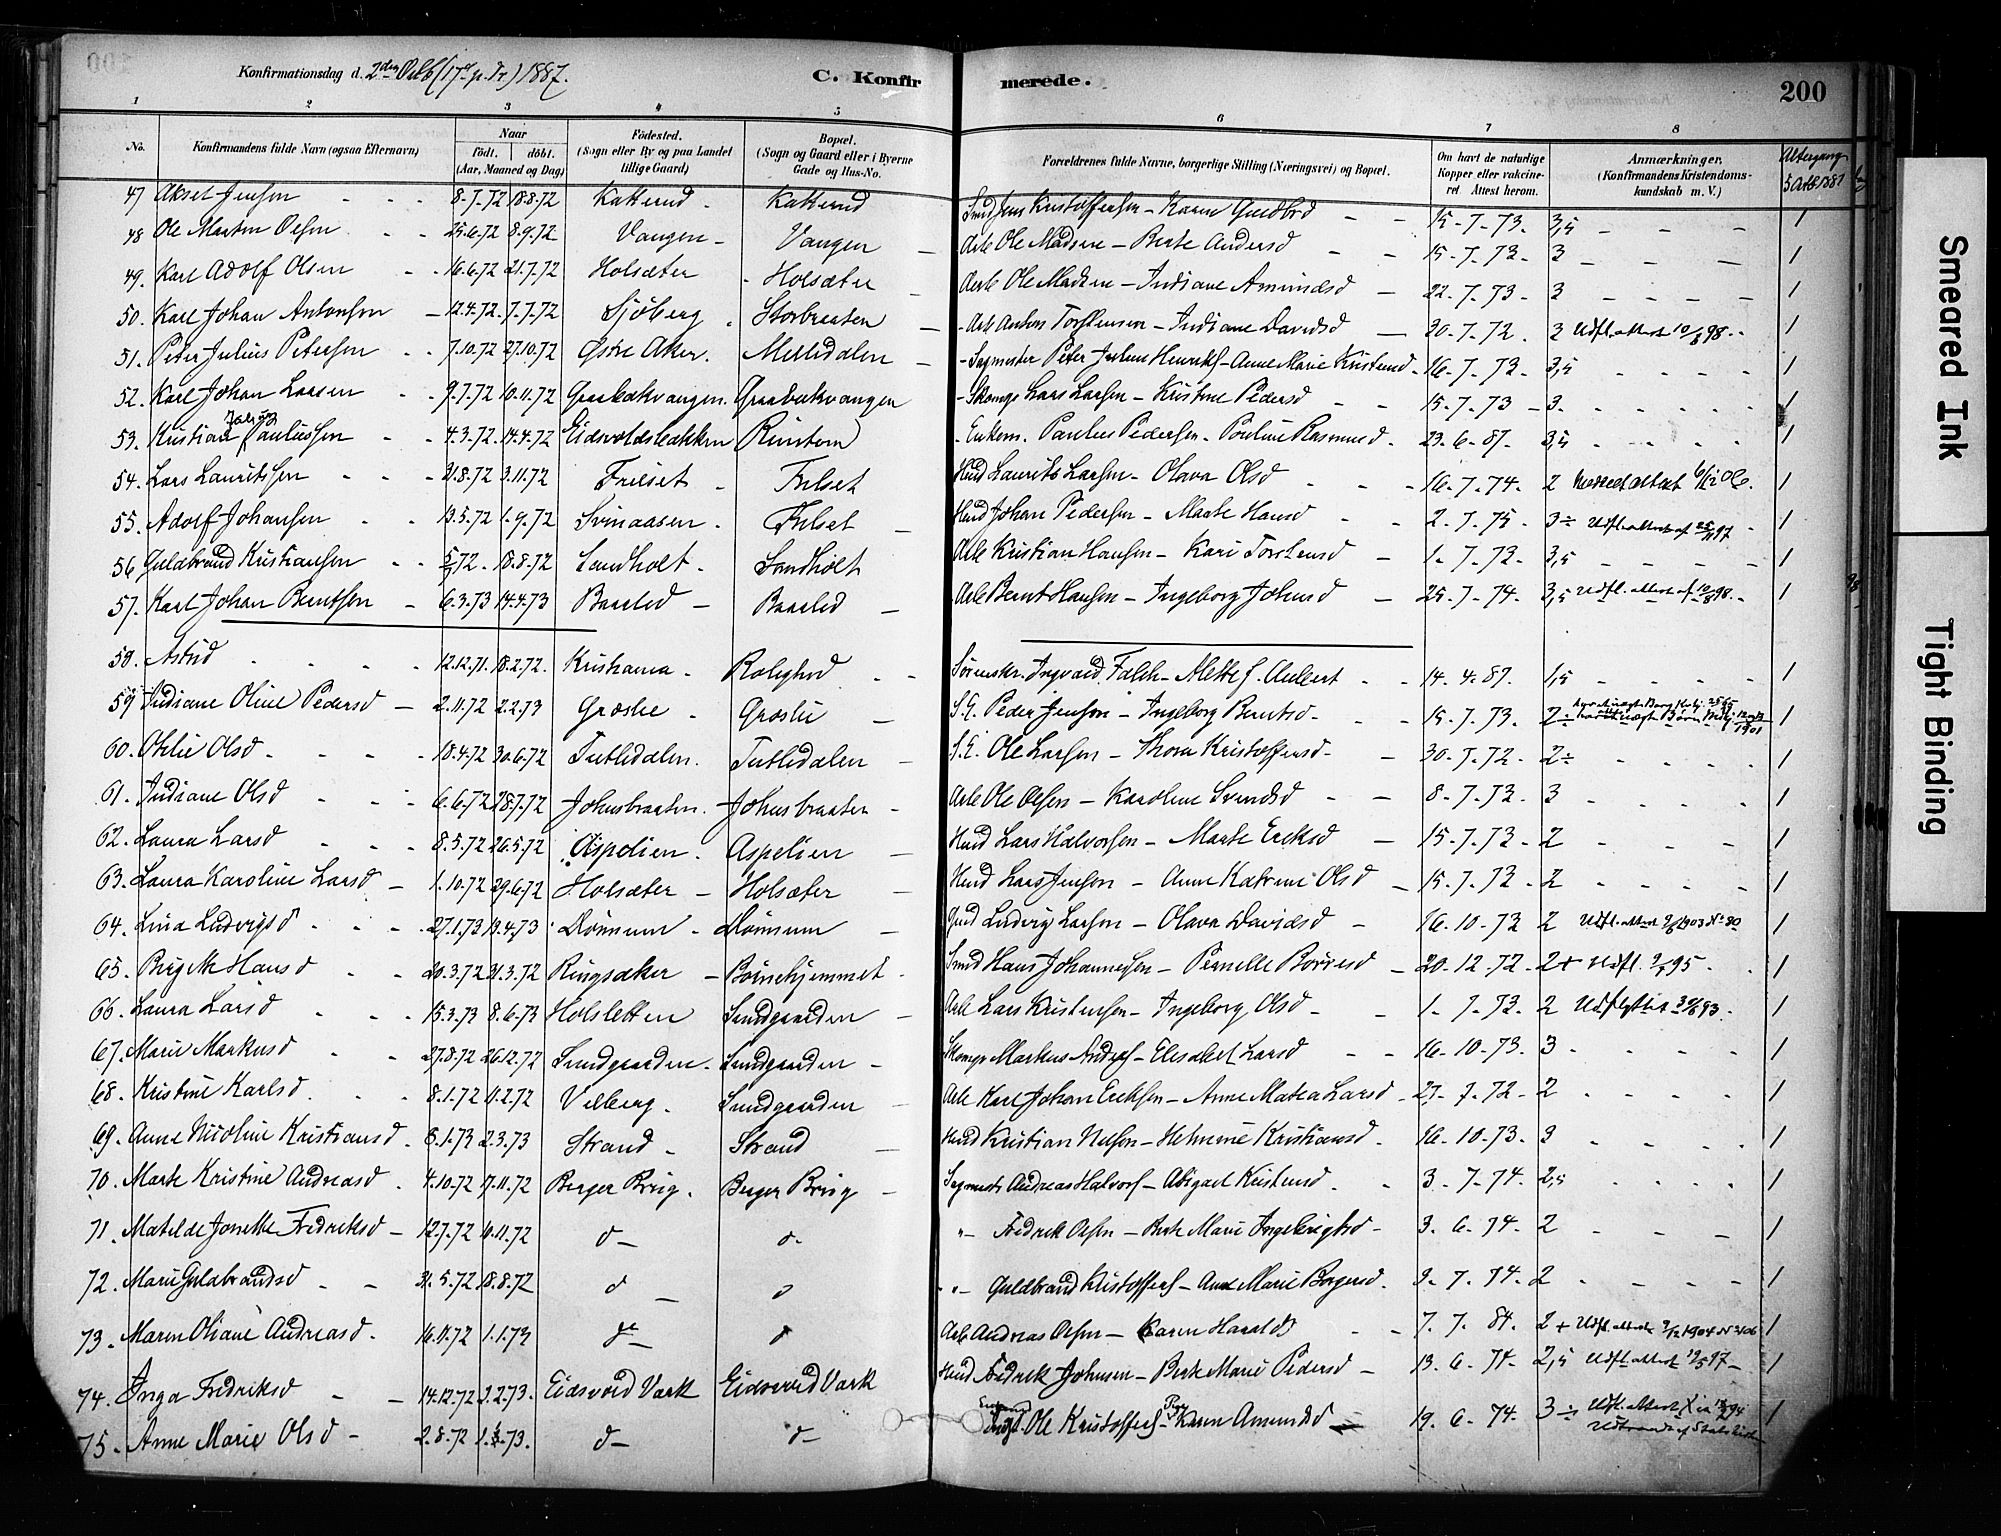 Konfirmationsdag d. 2den Octb (17de p. Tr) 1887.
C. Konfirmerede.
200
1 2 3 4 5 6 7 8
No. Konfirmandens fulde Navn (ogsaa Efternavn) Naar født. døbt. (Aar, Maaned og Dag) Fødested. (Sogn eller By og paa Landet tillige Gaard) Bopæl. (Sogn og Gaard eller i Byerne Gade og Hus-No. Forældrenes fulde Navne, borgerlige Stilling (Næringsvei) og Bopæl. Om havt de naturlige Kopper eller vakcineret Attest herom. Anmærkninger. (Konfirmandens Kristendomskundskab m. V.) Altergang
47 Aksel Jensen 8.7.72 18.8.72 Katterud Katterud Smed Jens Kristoffersen - Karen Guldbd 15-7-73. 3,5 1
48 Ole Martin Olsen 25.6.72 8.9.72 Vangen - Vangen Arb Ole Madsen - Berte Andersd 15-7-73. 3 1
49. Karl Adolf Olsen 16.6.72 21.7.72 Holsæter Holsæter Arb Ole Madsen - Indiane Amundsd 22.7.73. 3 1
50. Karl Johan Antonsen 12.4.72. 7.7.72 Sjöberg Storbraaten Arb Anton Torstensen - Indiane Davidsd 30.7.72. 3 Udfl. attest 10/8 98. 1
51. Peter Julius Petersen 7.10.72 27.10.72 Østre Aker. Mellidalen Sagmester Peter Julius Henriks - Anne Marie Kristensd 16-7-73. 3,5 1
52. Karl Johan Larsen 9.7.72 10.11.72 Graabækvangen. Graabækvangen Skomgr Lars Larsen - Kristine Pedersd 15-7-73 3. 1
53. Kristian Julius Pauliussen 4.3.72. 14.4.72 Eidsvoldsbakken Rusten Enkem. Paulus Pedersen - Pauline Rasmusd. 23-6-87. 3,5 1
54. Lars Lauritssen 31.8.72 3.11.72 Frilset Frilset Hmd Laurits Larsen - Olava Olsd 16-7-74. 2 1
55. Adolf Johansen 13.5.72 1.9.72 Svinaasen Frilset Hmd Johan Pedersen - Marte Hansd 2.7.75. 3÷ Udfl attest af 1
56. Guldbrand Kristiansen 18.8.72 Sandholt. Sandholt Arb Kristian Hansen - Kari Torstensd 1.7.72. 3,5 1
57. Karl Johan Berntsen 6.3.73 14.4.73 Baarlid Baarlid Arb Bernt Hansen - Ingeborg Johnsd 25.7.74. 3,5 Udfl. attest af 10/8 98. 1
58. Astrid 12.12.71. 18.2.72. Kristiania Rolighed Sorenskr. Ingvald Falch - Alette f. Aubert 14.4.87. 1,5 1
59 Indiane Oline Pedersd 2.11.72 2.2.73 Groslie Groslie S.E. Peder Jensen - Ingeborg Berntsd. 15.7.73. 2÷ 1
60. Otilie Olsd 18.4.72 30.6.72 Tutlidalen. Tutlidalen S.E. Ole Larsen - Thora Kristoffersd 30.7.72. 2÷ 1
61. Indiane Olsd 6.6.72 28.7.72 Johnsbraaten. Johnsbraaten Arb Ole Olsen - Karoline Svendsd 8.7.73. 3 1
62. Laura Larsd 8.5.72 26.5.72 Aspelien. Aspelien Hmd Lars Halvorsen - Marte Eriksd 15.7.73. 2 1
63. Laura Karoline Larsd 1.10.72 29.6.72 Holsæter Holsæter Hmd Lars Jensen - Anne Katrine Olsd 15.7.73. 2 1
64. Lina Ludvigsd 27.1.73 13.4.73 Dönnum Dönnum Ludvig Larsen - Olava Davidsd 16.10.73 2 Udfl. attest 1903 No 30 1
65. Birgitte Hansd 20.3.72 31.3.72 Ringsaker Børnehjemmet Smed Hans Johannesen - Pernelle Borresd 20.12.72. 2+ Udfl. 95. 1
66. Laura Larsd 15.3.73 8.6.73 Holsletten Sundgaarden Arb Lars Kristensen - Ingeborg Olsd 1.7.73. 2 Udflyttet 93. 1
67. Marie Markusd 27.8.72 26.12.72 Sundgaarden Sundgaarden Skomgr Markus Anders - Elisabet Larsd 16.10.73. 3 1
68. Kristine Karlsd. 8.1.72 11.2.72 Velberg. Sundgaarden Arb Karl Johan Eriksen - Anne Matea Larsd 27.7.72 2 1
69. Anne Nicoline Kristiansd. 8.1.73 2.3.73 Strand Strand Hmd Kristian Nilsen - Helmine Kristiansd. 16.10.73. 3 1
70. Marte Kristine Andreasd 4.10.72 17.11.72 Berger Brug. Berger Brug Sagmest Andreas Halvors - Abigael Kristensd. 3.7.74. 2,5 1
71. Matilde Jonette Fredriksd 12.7.72 10.11.72 d d " Fredrik Olsen - Berte Marie Ingebrigtsd 3.6.74. 2 1
72. Marie Guldbrandsd 31.5.72 18.8.72 d d " Guldbrand Kristoffers - Anne Marie Borgersd. 3.7.74. 2 1
73. Maren Oliane Andreasd. 16.11.72 1.1.73 d d Arb Andreas Olsen - Karen Haralds 7.7.84. 2+ Udfl. attest 1904 1
74. Inga Fredriksd 14.12.72 2.2.73. Eidsvold Værk Eidsvold Værk Hmd Fredrik Johnsen - Berte Marie Pedersd 13.6.74. 2,5 Udfl. attest 97 1
75. Anne Marie Olsd 2.8.72 d d Ole Kristoffers - Karen Amundsd 19.6.74. 3÷ Udfl. attest 94 1
Udtraadt af Statskirken
Smeared Ink
Tight Binding